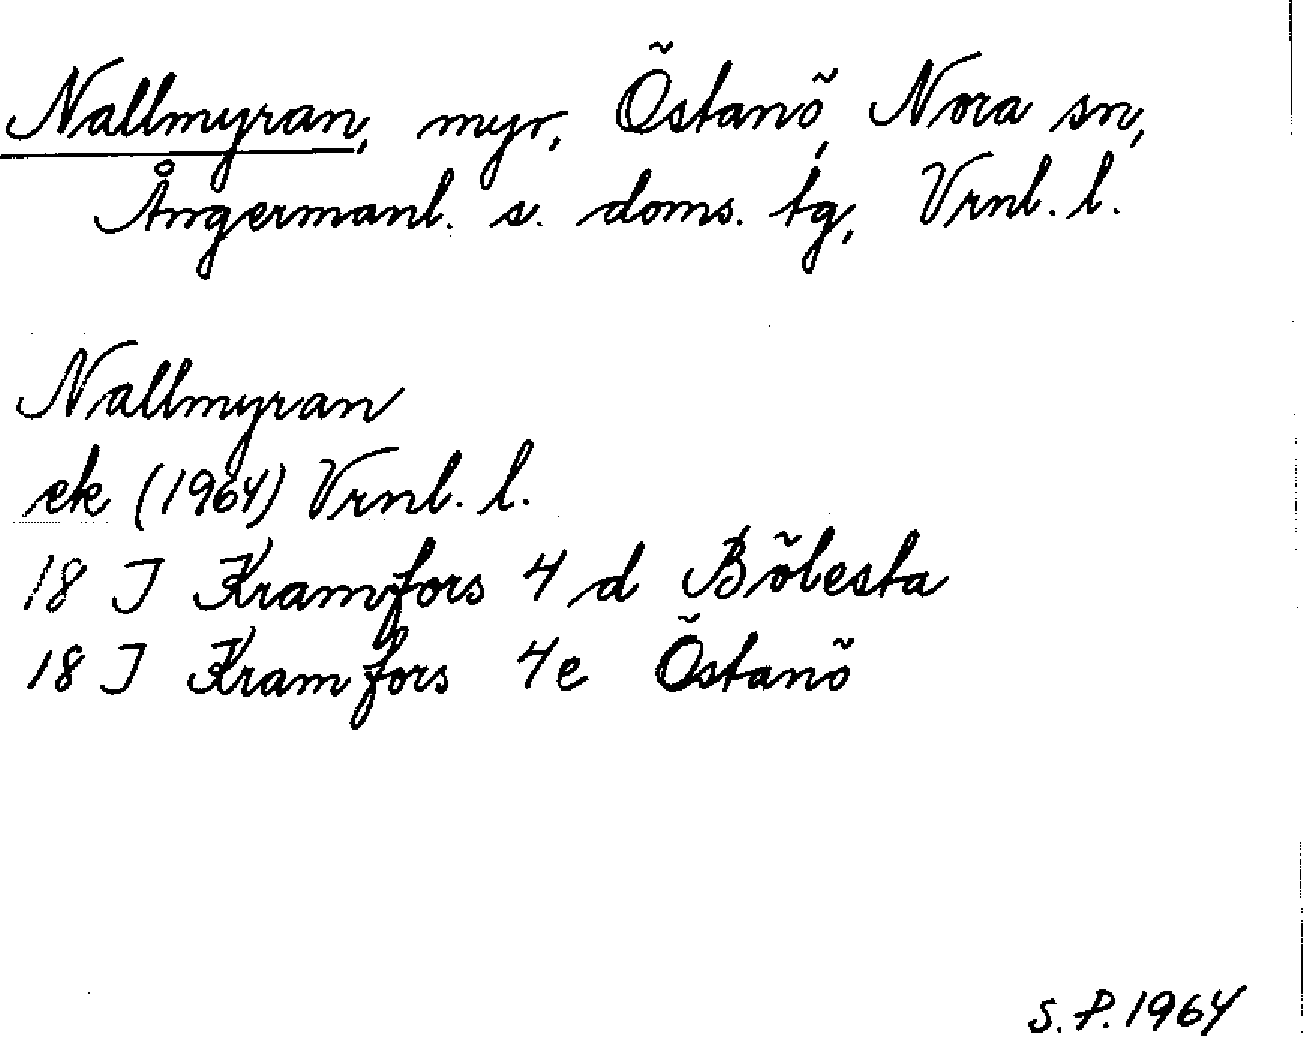 Nallmyran, myr, Östanö, Nora sn,
Ångermanl. s. doms. tg, Vrnl. l.
Nallmyran
ek (1964) Vrnl. l.
18 I Kramfors 4 d Bölesta
18 I Kramfors 4e Östanö
S.P. 1964